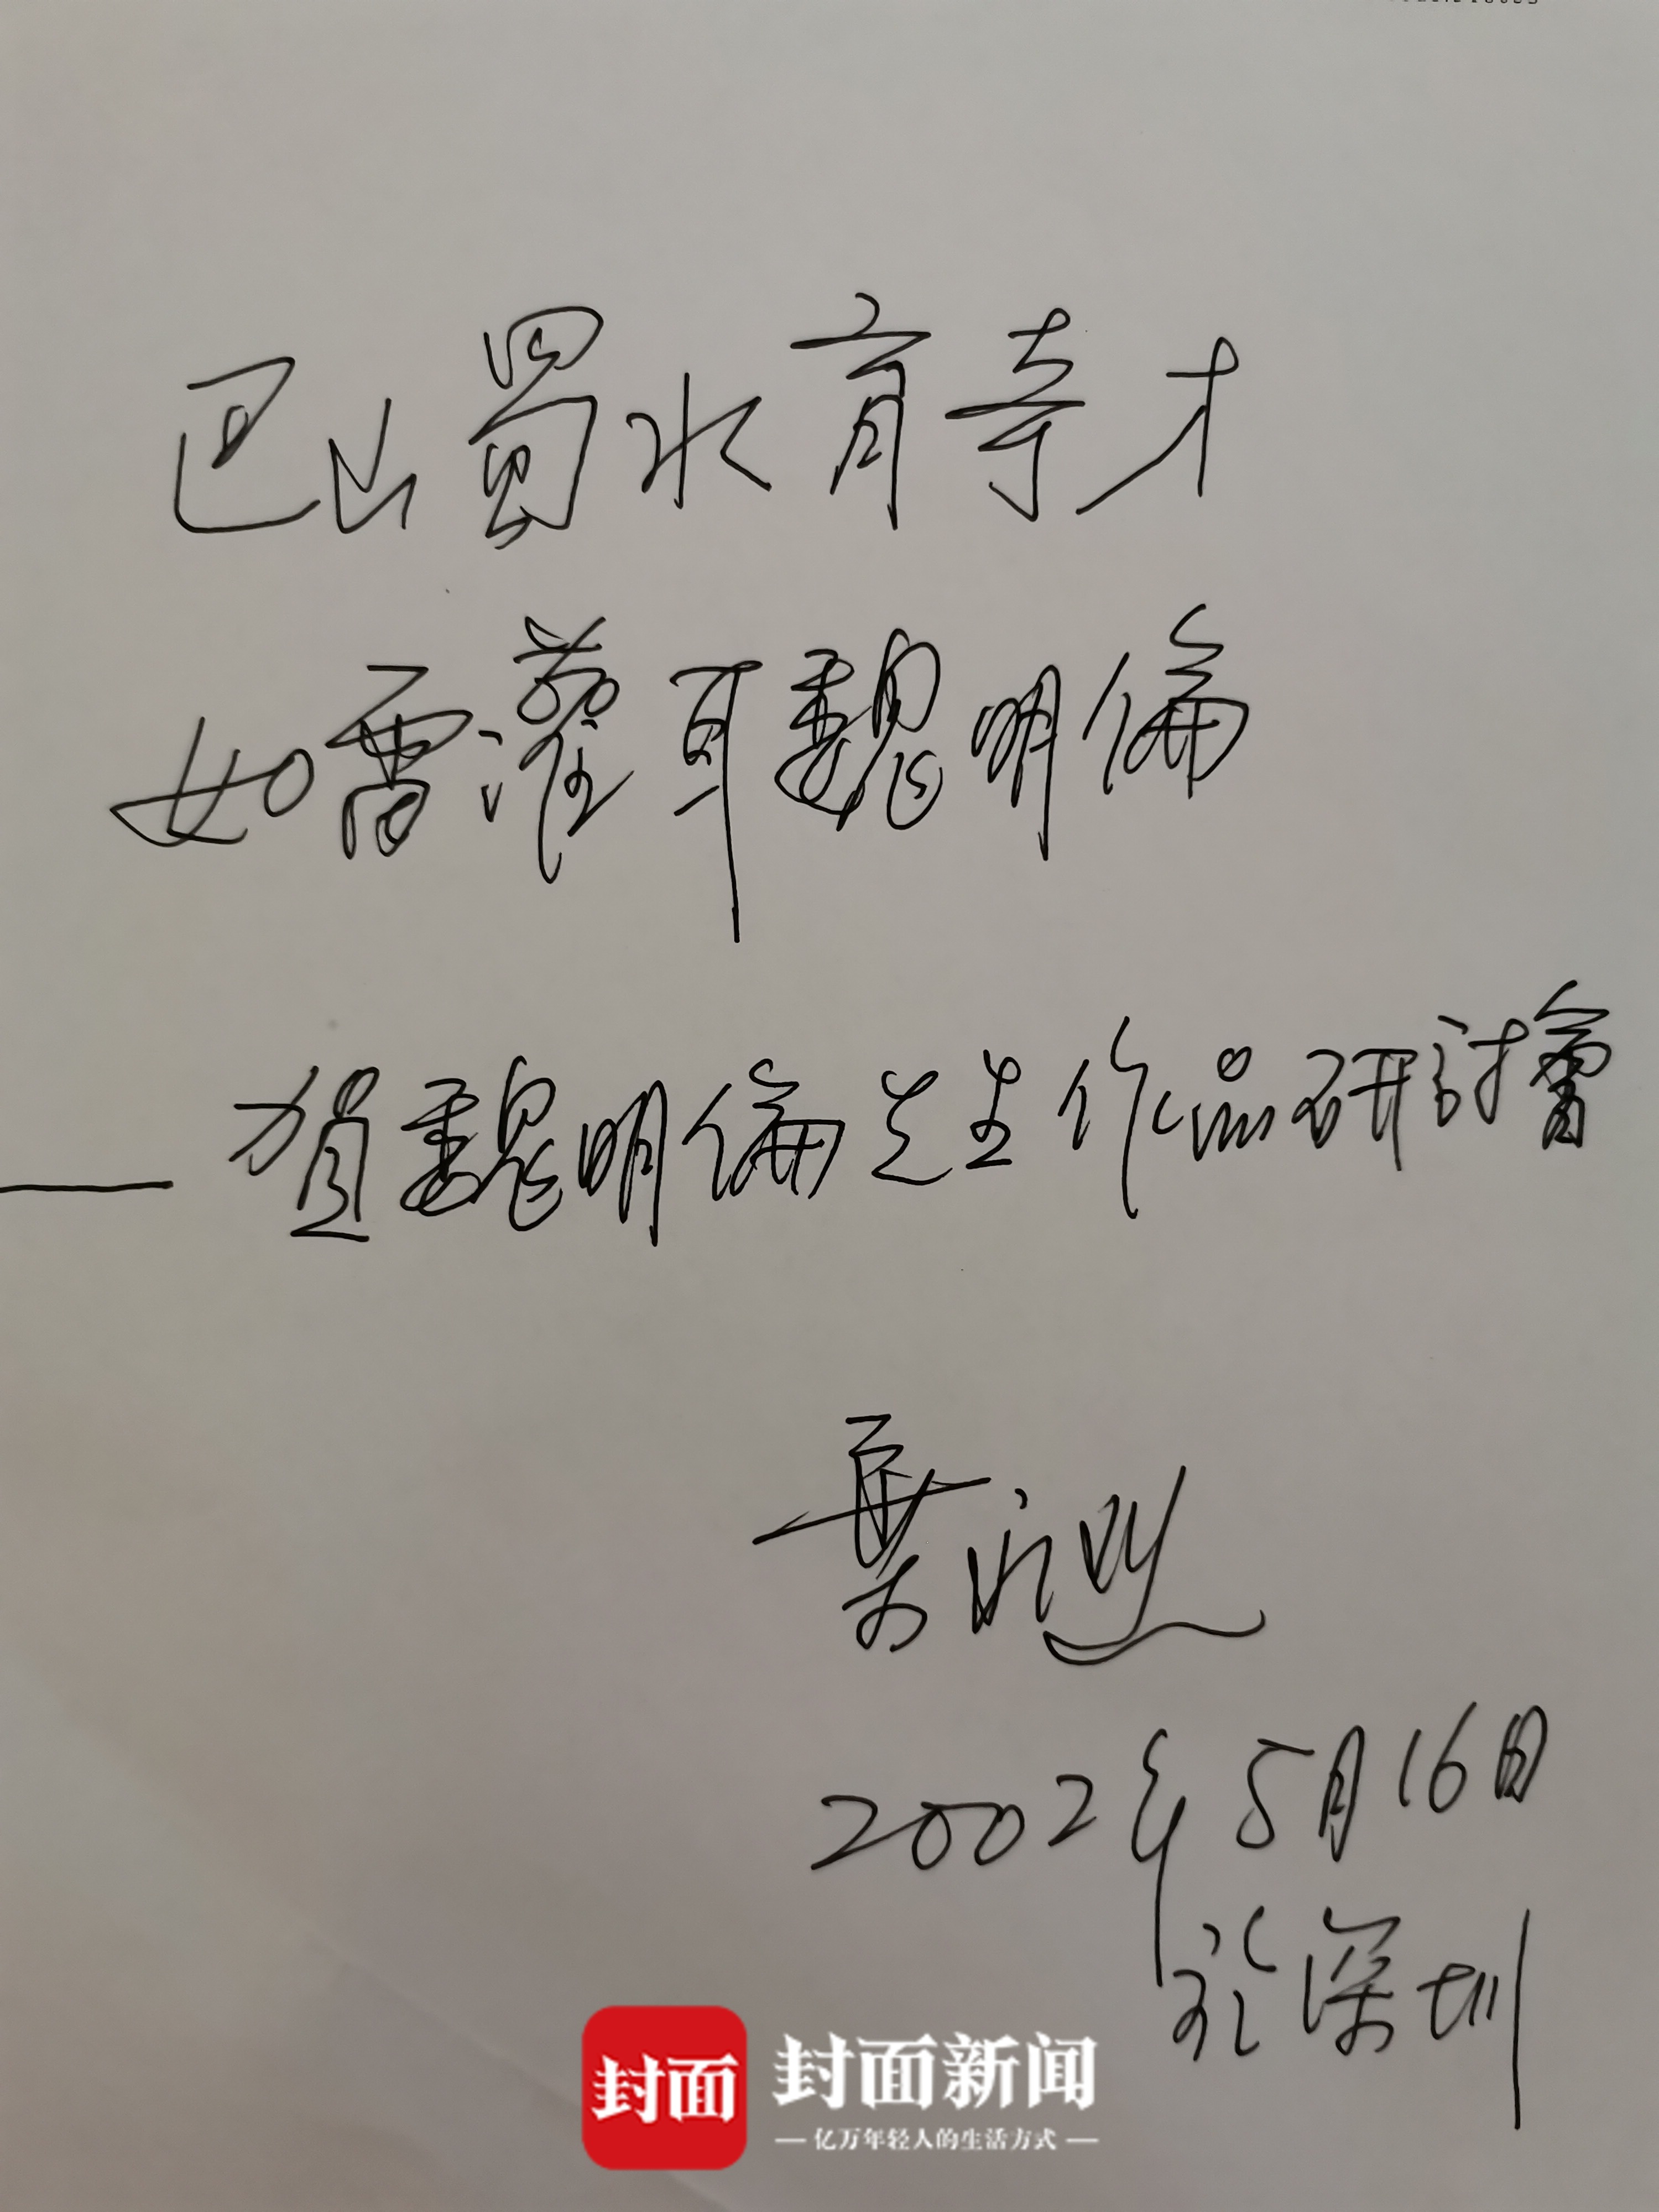 巴山蜀水育奇才
如雷灌耳魏明倫
——賀魏明倫先生作品研討會
葉永烈
2002年5月16日
於深圳
封面
封面新闻
— 亿万年轻人的生活方式 —